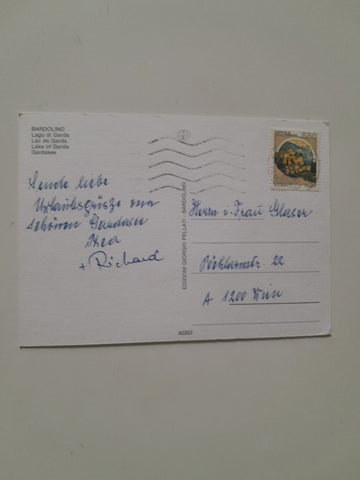 BARDOLINO
Lago di Garda
Lac de Garda
Lake of Garda
Gardasee
Sende liebe
Urlaubsgrüße vom
schönen Gardasee
+ Richard
EDIZIONI GIORGIO PELLATI - BARDOLINO
Herrn u. Frau Glaser
22
A 1200 Wien